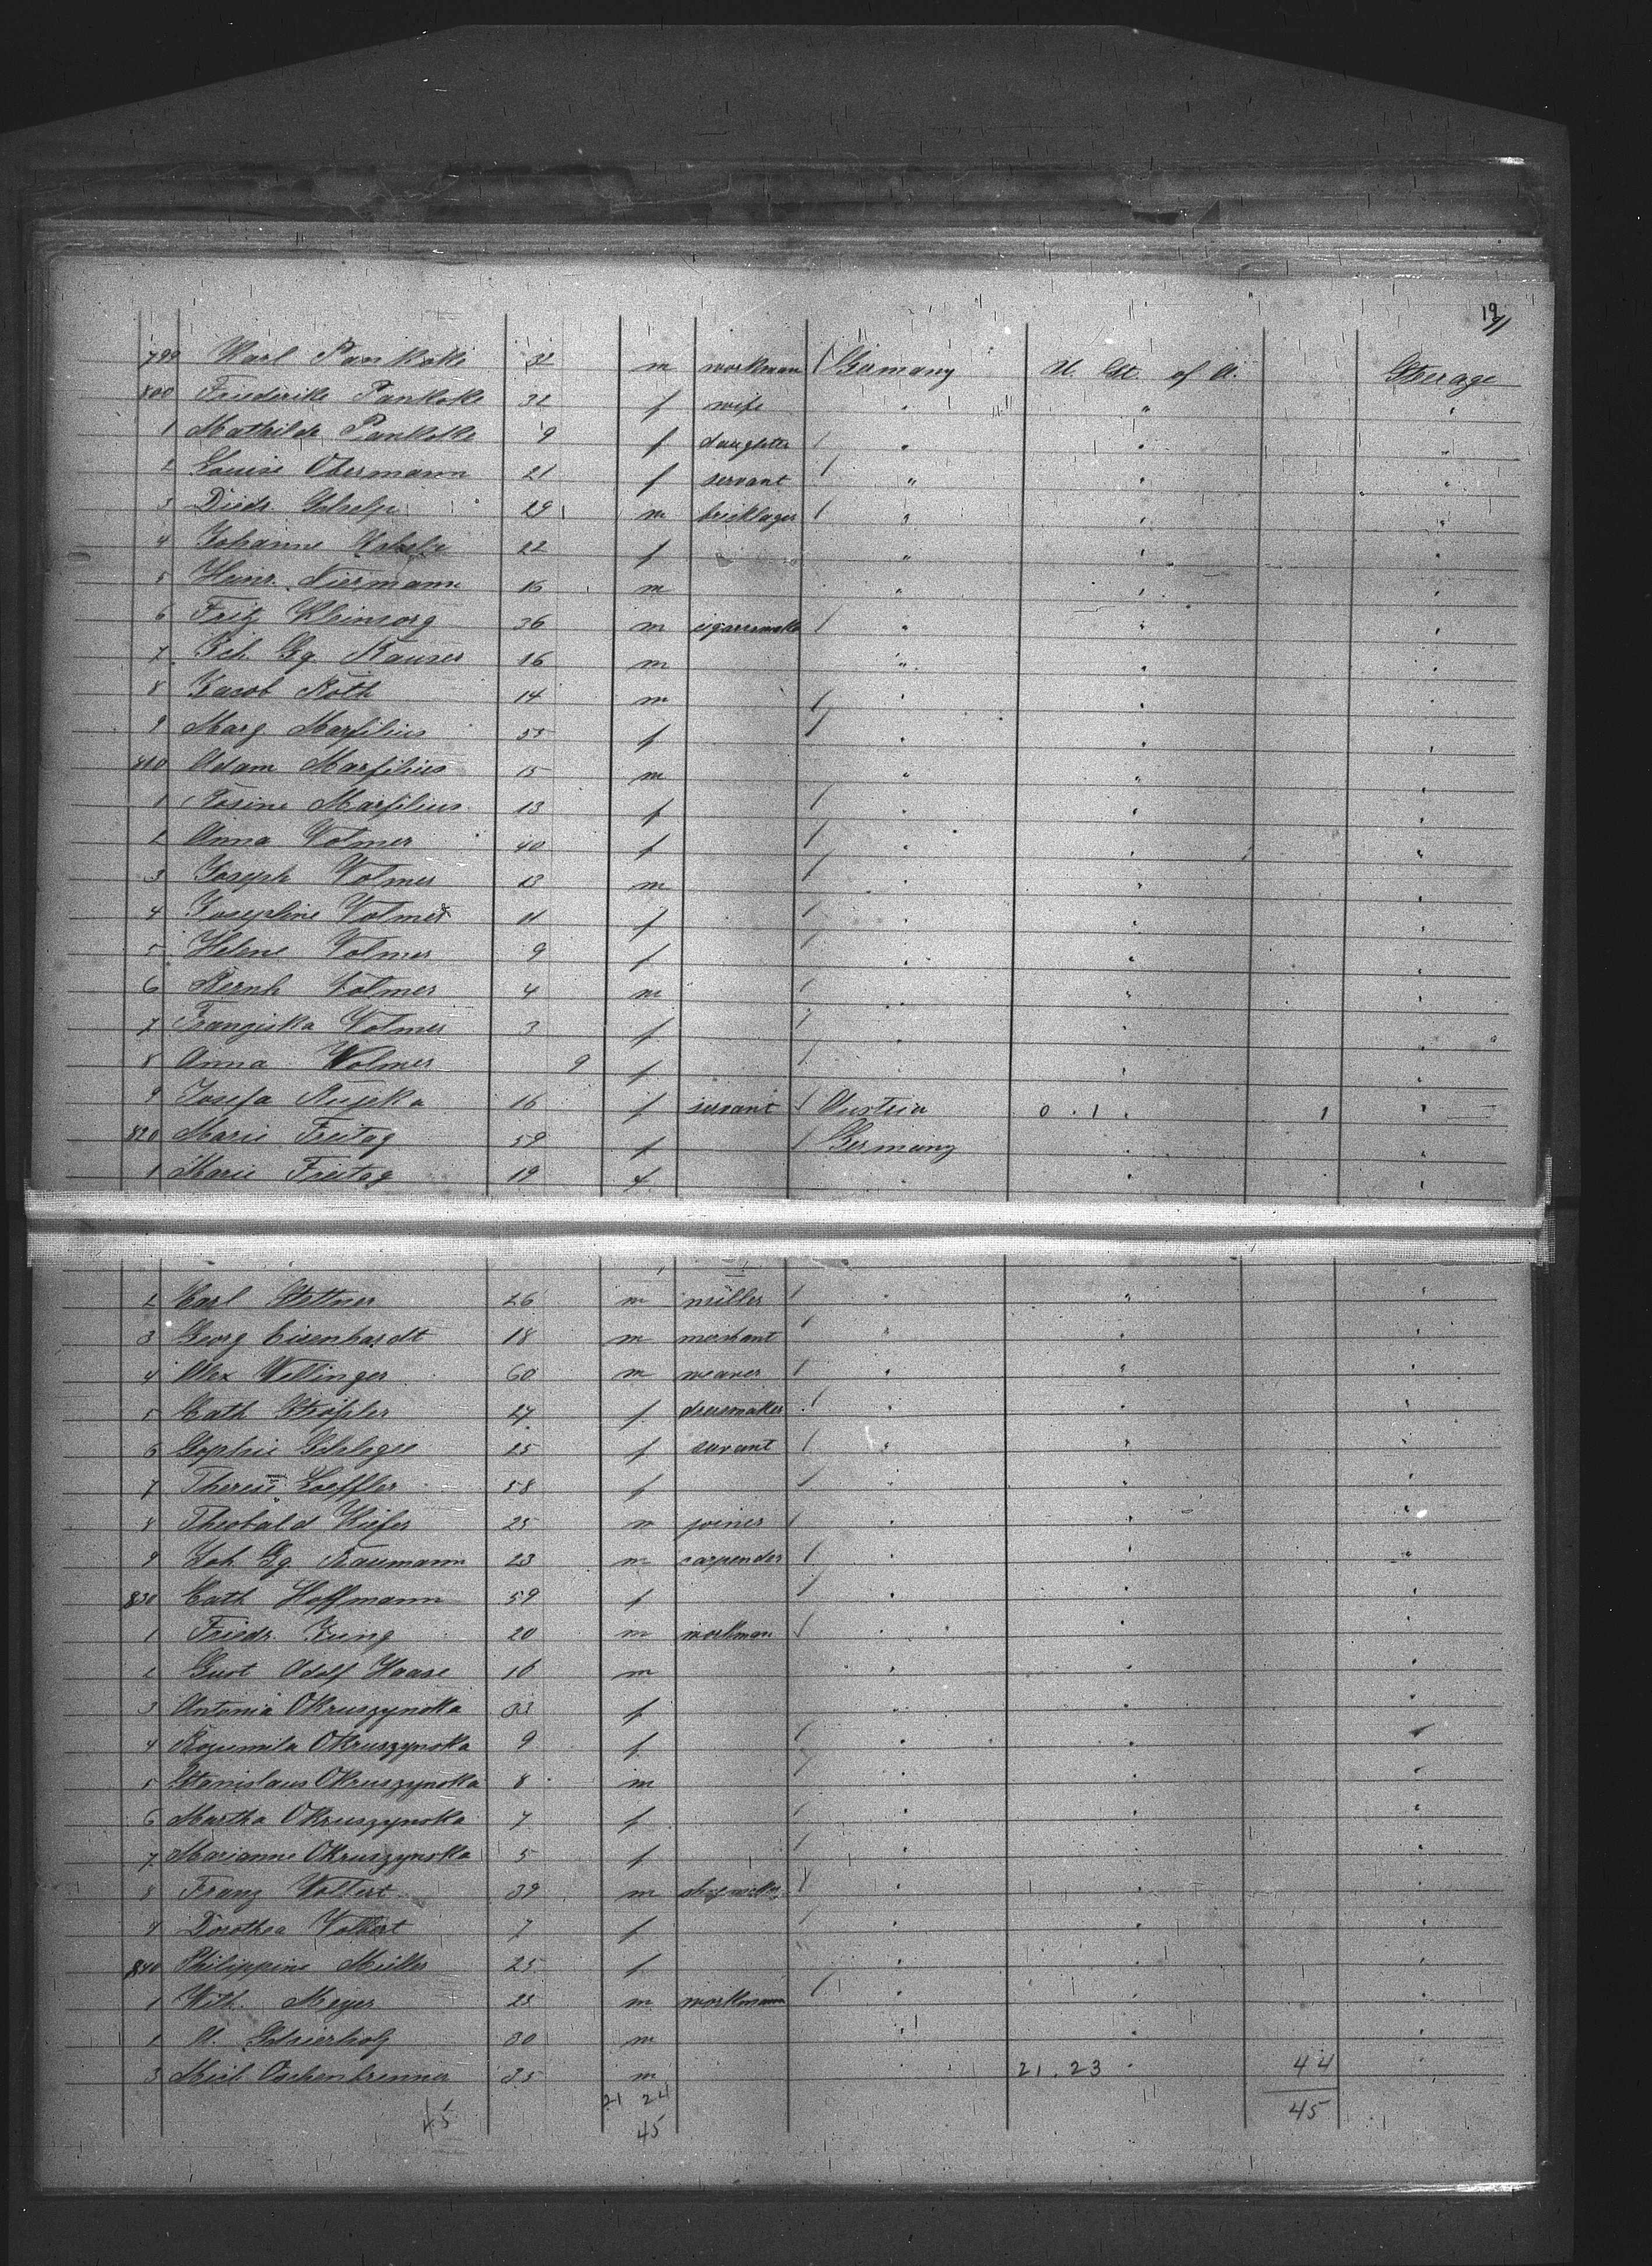 19
799 Karl Pankoke 32 m workmann / Germany U. St. of A. Steerage
800 Friederike Pankoke 32 f wife " " "
1 Mathilde Pankoke 9 f daughter / " " "
2 Louise Obermann 21 f servant / " " "
3 Diedr. 29 m bricklayer / " " "
4 Johanne 22 f " " "
5 Heinr. Niermann 16 m " " "
6 Fritz Kleinsorg 36 m / " " "
7 Joh. Gg. Kauser 16 m " " "
8 Jacob Roth 14 m / " " "
9 Marg Marfilius 55 f / " " "
810 Adam Marfilius 15 m " " "
1 Rosine Marfilius 13 f / " " "
2 Anna Volmer 40 f / " " "
3 Joseph Volmer 13 m / " " "
4 Josephine Volmer 11 f / " " "
5 Helene Volmer 9 f / " " "
6 Bernh Volmer 4 m / " " "
7 Franziska Volmer 3 f / " " "
8 Anna Volmer 9 f / " " "
9 Josefa 16 f servant / Austria 0.1. 1 "
820 Marie Freitag 59 f / Germany " "
1 Marie Freitag 19 f " " "
2 Carl Stettner 26 m miller / " " "
3 Georg Eisenhardt 18 m merchant / " " "
4 Alex Willinger 60 m weaver / " " "
5 Cath 27 f dressmaker / " " "
6 Sophie 25 f servant / " " "
7 Therese Loeffler 58 f / " " "
8 Theobald Kiefer 25 m joiner / " " "
9 Joh. Gg. Naumann 23 m carpender / " " "
830 Cath Hoffmann 59 f / " " "
1 Friedr. Jung 20 m workman / " " "
2 Gust Adolf Haase 16 m " " "
3 Antonia Okruszynska 33 f " " "
4 Okruszynska 9 f / " " "
5 Stanislaus Okruszynska 8 m / " " "
6 Martha Okruszynska 7 f / " " "
7 Marianne Okruszynska 5 f / " " "
8 Franz Volbert 39 m / " " "
9 Dorothea Volbert 7 f / " " "
840 Philippine Müller 25 f " " "
1 Wilh. Meyer 23 m workmann / " " "
1 A. Schierholz 30 m " " "
3 Mich Oschenbrenner 35 m " 21.23 " 44 "
45 21 24 45
45